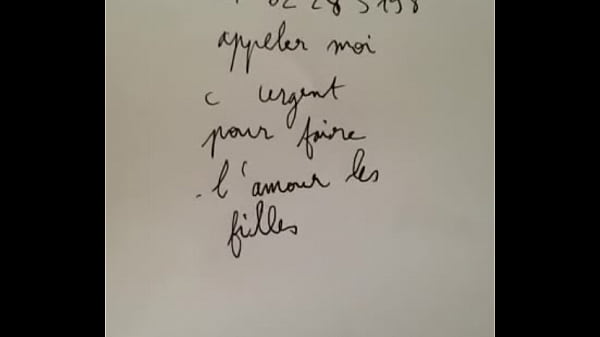 02 28 5198
appeler moi
c urgent
pour faire
l'amour les
filles